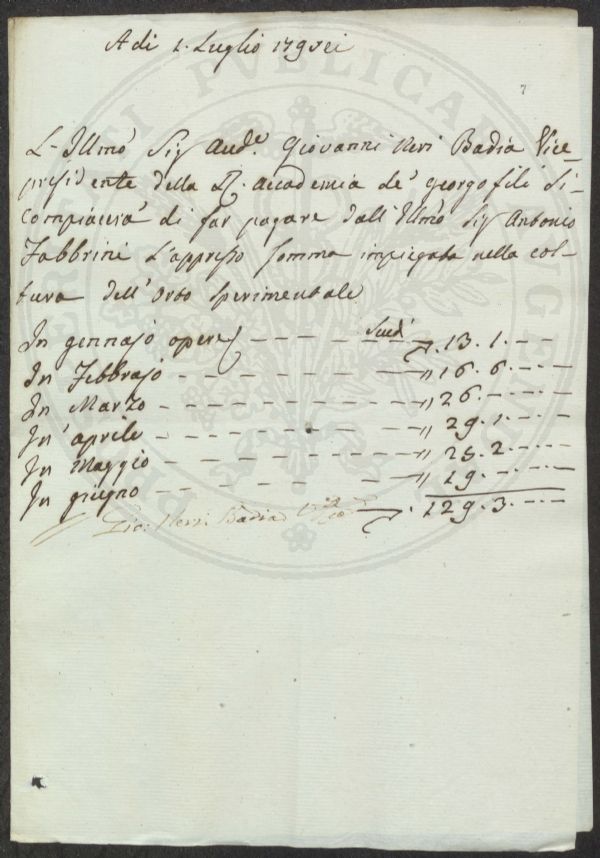 A di 1. Luglio 179sei
7
L'Illmo Sig Aude. Giovanni Neri Badia Vice-
presidente della R. Accademia de' georgofili Si-
compiacerà di far pagare dall'Illmo Sig Antonio
Fabbrini L'appresso somma impiegata nella col-
tura dell'Orto Sperimentale
In gennajo opere - - - - Scudi 13. 1. - -
In Febbrajo - - - - - - - " 16. 6. - - -
In Marzo - - - - - - - " 26. - - - -
In aprile - - - - - - - " 29. 1. - - -
In Maggio - - - - - - - " 25. 2. - - -
In giugno - - - - - - - " 19. - - - -
Gio. Neri Badia 129. 3. - - -